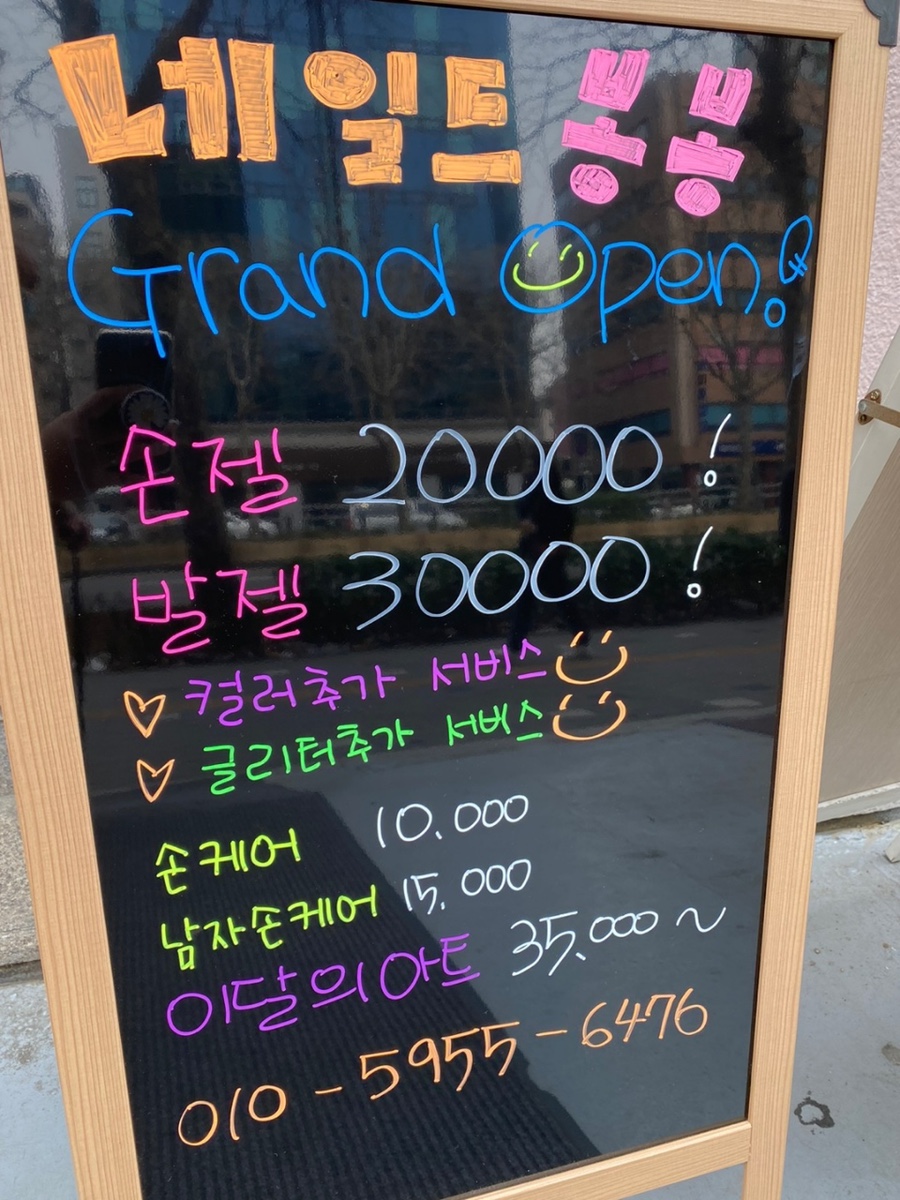 네일드 봉봉
Grand Open!
손젤 20000 !
발젤 30000 !
♡ 컬러추가 서비스
♡ 글리터추가 서비스
손케어 10.000
남자손케어 15.000
이달의아트 35.000 ~
010 - 5955 - 6476